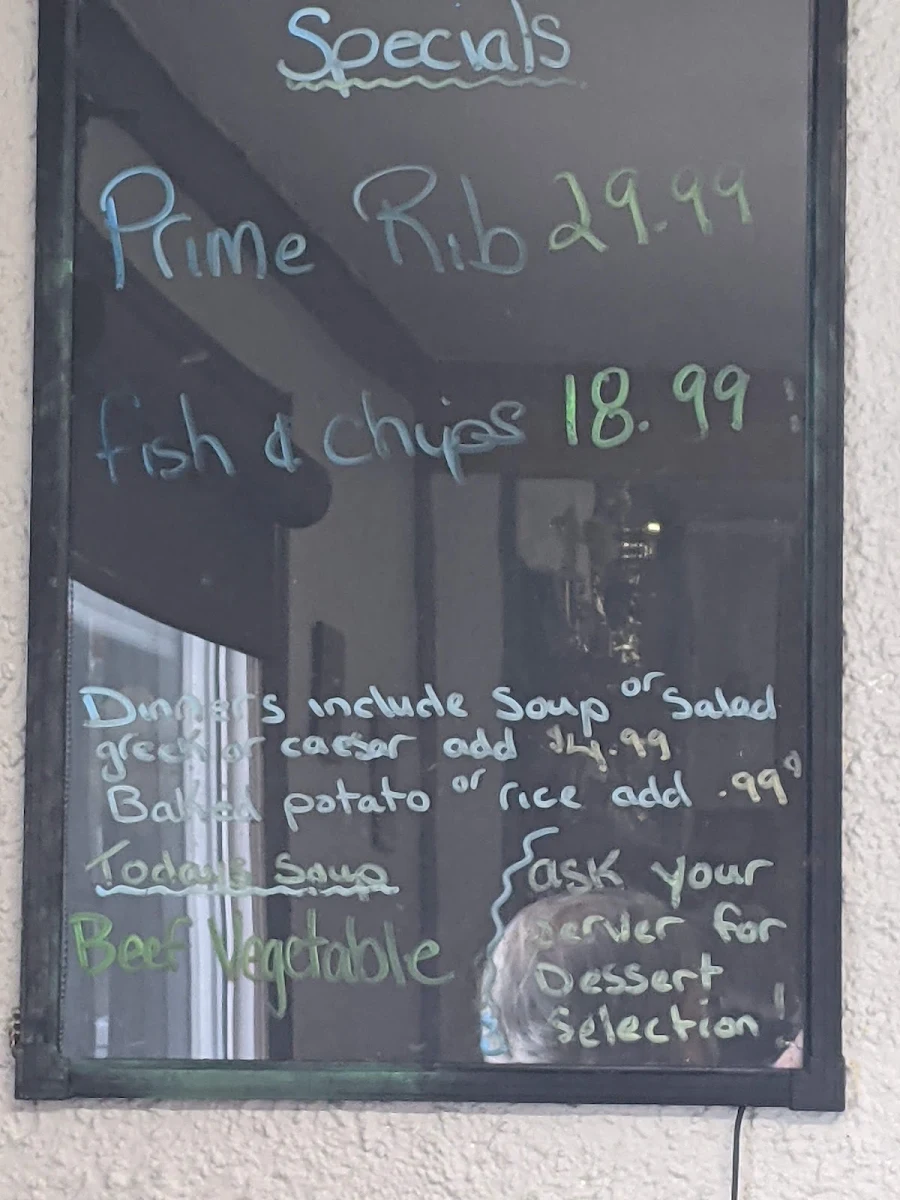 Specials
Prime Rib 29.99
fish & chips 18.99
Dinners include Soup or Salad
greek or caesar add $4.99
Baked potato or rice add .99¢
Today's Soup
Beef Vegetable
ask your
server for
Dessert
Selection